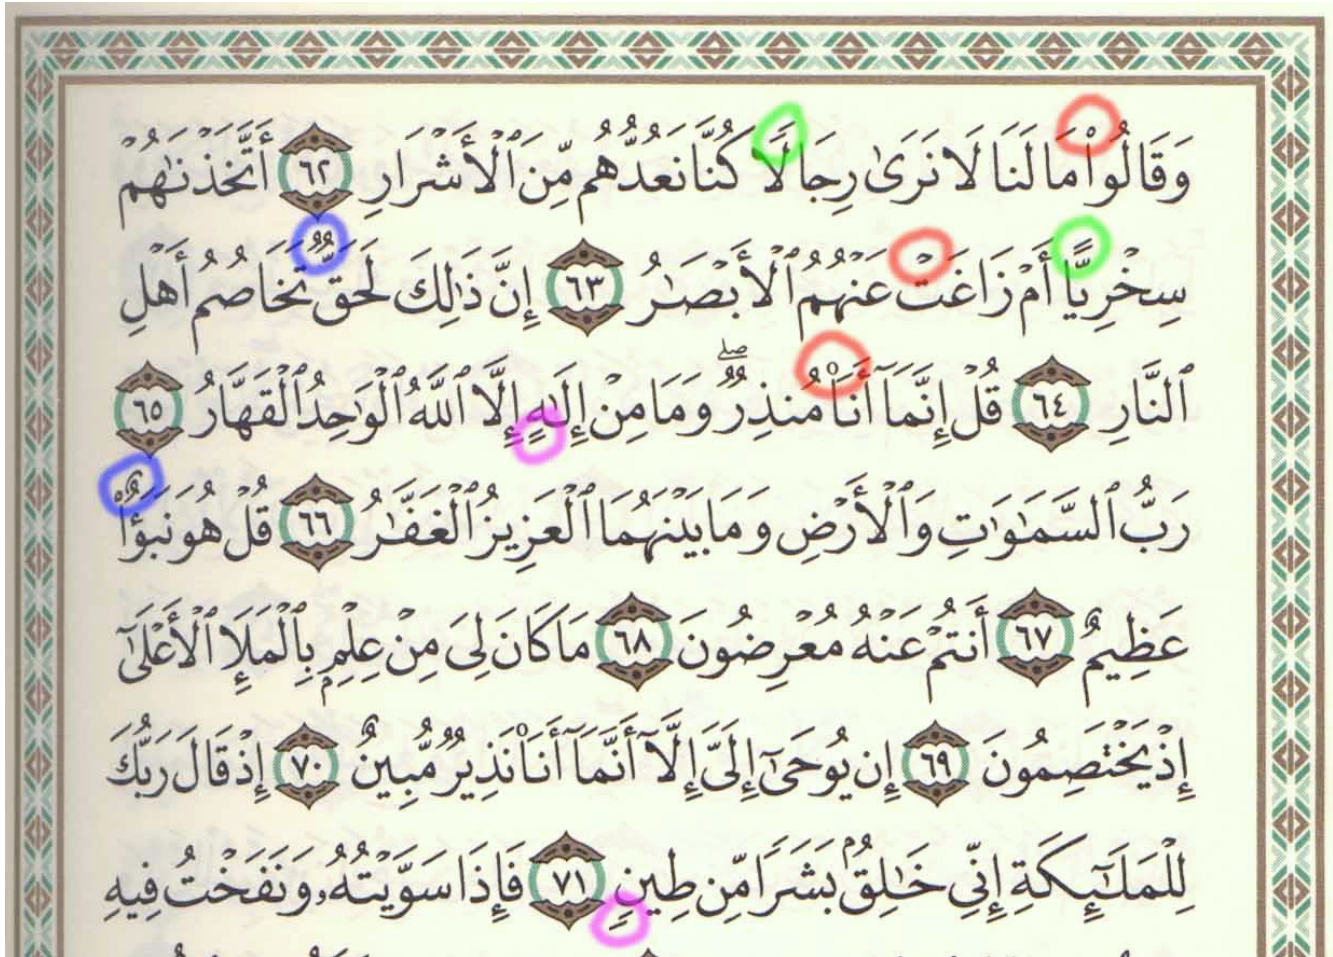 وَقَالُوا۟ مَا لَنَا لَا نَرَىٰ رِجَالًا كُنَّا نَعُدُّهُم مِّنَ ٱلْأَشْرَارِ ٦٢ أَتَّخَذْنَـٰهُمْ
سِخْرِيًّا أَمْ زَاغَتْ عَنْهُمُ ٱلْأَبْصَـٰرُ ٦٣ إِنَّ ذَٰلِكَ لَحَقٌّ تَخَاصُمُ أَهْلِ
ٱلنَّارِ ٦٤ قُلْ إِنَّمَآ أَنَا۠ مُنذِرٌ ۖ وَمَا مِنْ إِلَـٰهٍ إِلَّا ٱللَّهُ ٱلْوَٰحِدُ ٱلْقَهَّارُ ٦٥
رَبُّ ٱلسَّمَـٰوَٰتِ وَٱلْأَرْضِ وَمَا بَيْنَهُمَا ٱلْعَزِيزُ ٱلْغَفَّـٰرُ ٦٦ قُلْ هُوَ نَبَؤٌا۟
عَظِيمٌ ٦٧ أَنتُمْ عَنْهُ مُعْرِضُونَ ٦٨ مَا كَانَ لِىَ مِنْ عِلْمٍۭ بِٱلْمَلَإِ ٱلْأَعْلَىٰٓ
إِذْ يَخْتَصِمُونَ ٦٩ إِن يُوحَىٰٓ إِلَىَّ إِلَّآ أَنَّمَآ أَنَا۠ نَذِيرٌ مُّبِينٌ ٧٠ إِذْ قَالَ رَبُّكَ
لِلْمَلَـٰٓئِكَةِ إِنِّى خَـٰلِقٌۢ بَشَرًا مِّن طِينٍ ٧١ فَإِذَا سَوَّيْتُهُۥ وَنَفَخْتُ فِيهِ